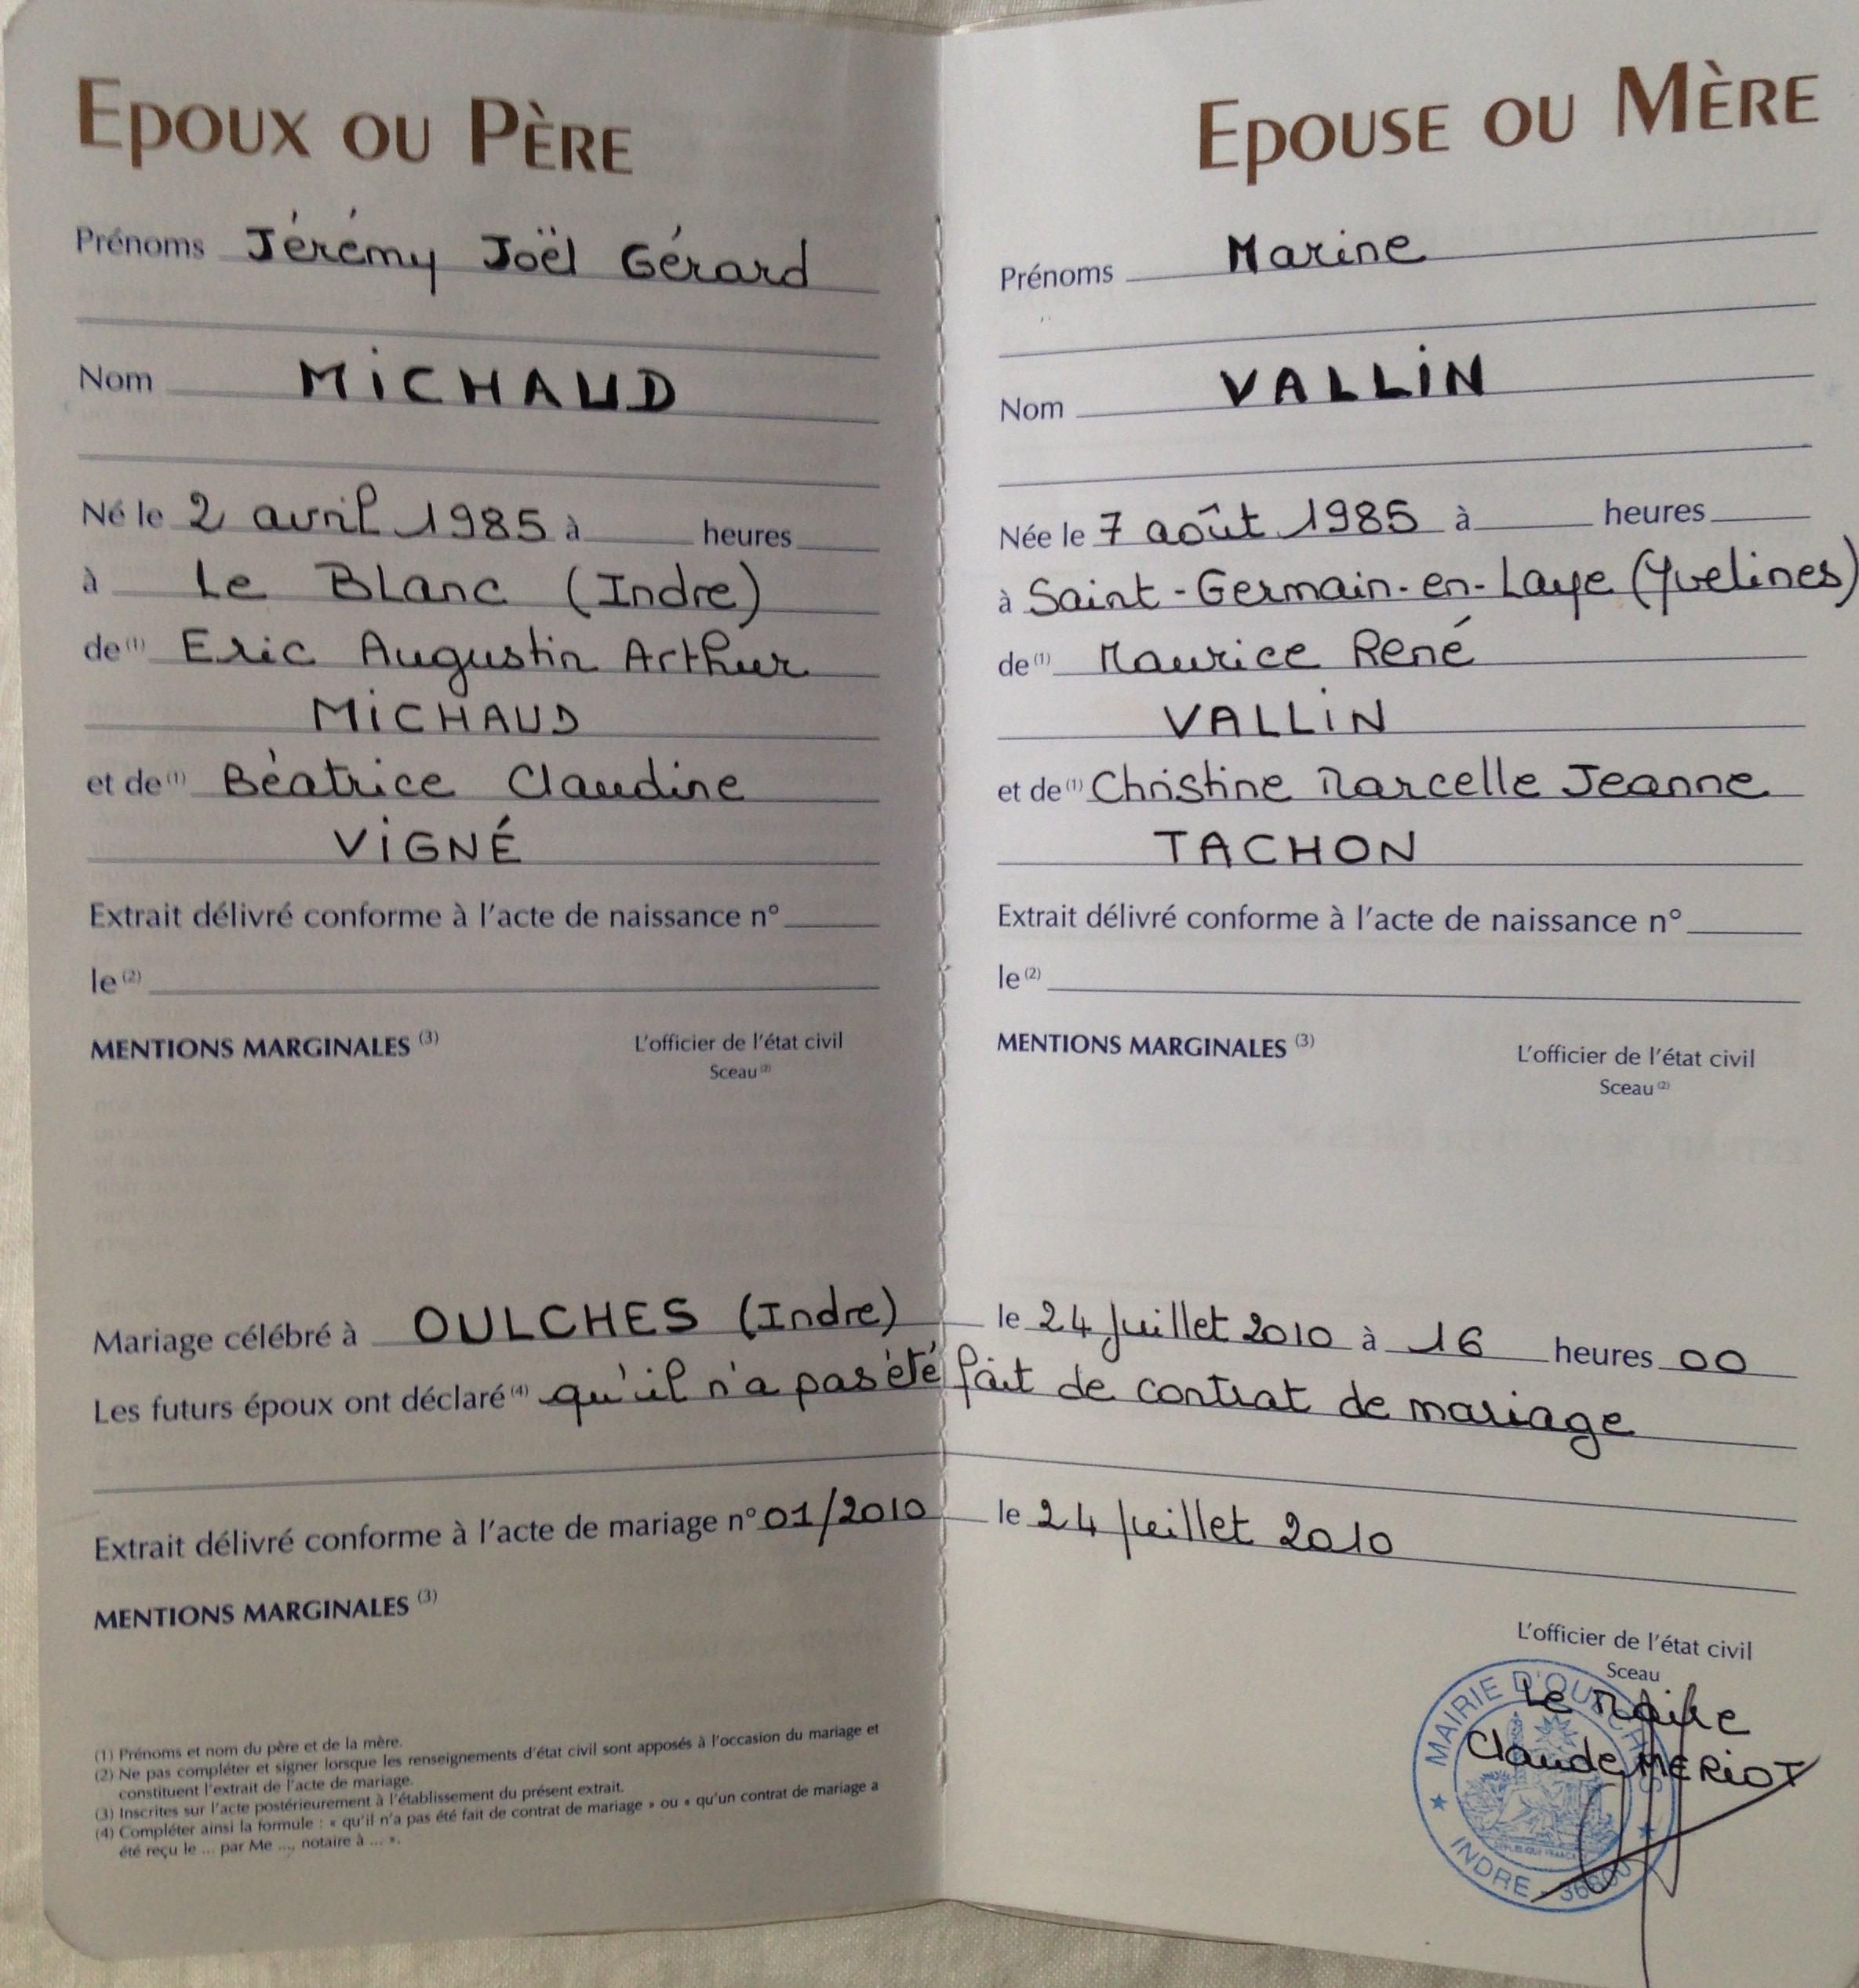 EPOUX OU PÈRE
Prénoms Jérémy Joël Gérard
Nom MiCHAUD
Né le 2 avril 1985 à heures
à Le Blanc (Indre)
de (1) Eric Augustin Arthur
MiCHAUD
et de (1) Béatrice Claudine
ViGNÉ
Extrait délivré conforme à l'acte de naissance n°
le (2)
MENTIONS MARGINALES (3)
L'officier de l'état civil
Sceau (2)
EPOUSE OU MÈRE
Prénoms Marine
Nom VALLiN
Née le 7 août 1985 à heures
à Saint-Germain-en-Laye (Yvelines)
de (1) Maurice René
VALLiN
et de (1) Christine Marcelle Jeanne
TACHON
Extrait délivré conforme à l'acte de naissance n°
le (2)
MENTIONS MARGINALES (3)
L'officier de l'état civil
Sceau (2)
Mariage célébré à OULCHES (Indre) le 24 Juillet 2010 à 16 heures 00
Les futurs époux ont déclaré (4) qu'il n'a pas été fait de contrat de mariage
Extrait délivré conforme à l'acte de mariage n° 01/2010 le 24 Juillet 2010
MENTIONS MARGINALES (3)
L'officier de l'état civil
Sceau
Le Maire
Claude MERiOT
MAIRIE D'OULCHES
INDRE - 36800
RÉPUBLIQUE FRANÇAISE
(1) Prénoms et nom du père et de la mère.
(2) Ne pas compléter et signer lorsque les renseignements d'état civil sont apposés à l'occasion du mariage et
constituent l'extrait de l'acte de mariage.
(3) Inscrites sur l'acte postérieurement à l'établissement du présent extrait.
(4) Compléter ainsi la formule : « qu'il n'a pas été fait de contrat de mariage » ou « qu'un contrat de mariage a
été reçu le ... par Me ..., notaire à ... ».